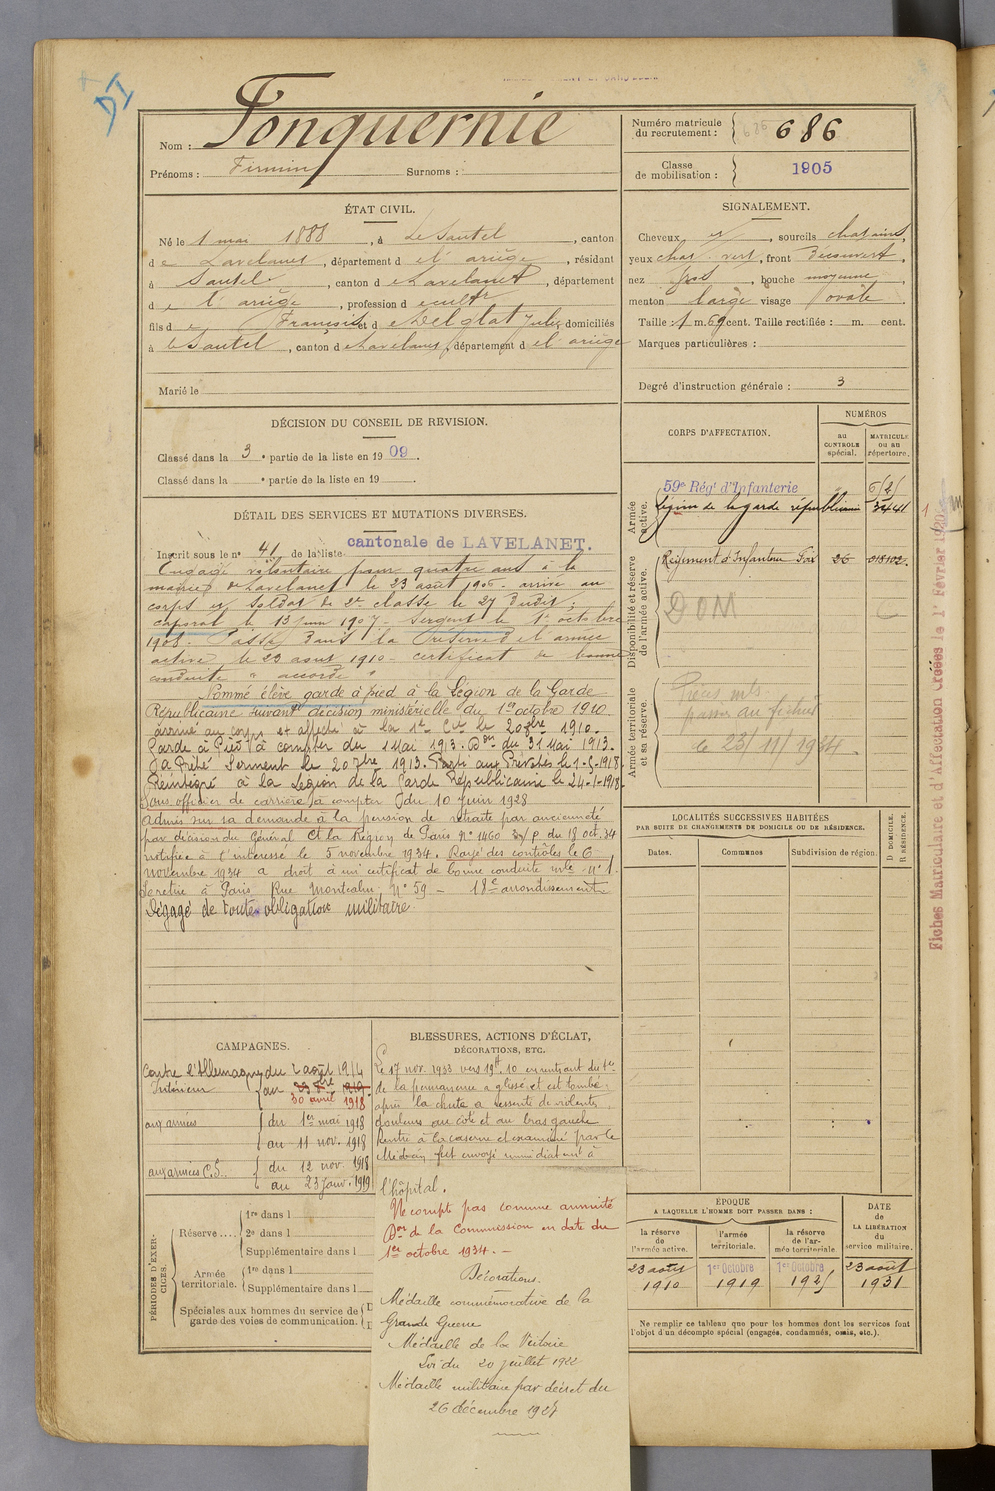 Nom : Fonquernie
Prénoms : Firmin Surnoms :
Numéro matricule du recrutement : 686
Classe de mobilisation : 1905
ÉTAT CIVIL.
Né le 1 mai 1888, à Le Sautel, canton
de Lavelanet, département de l'ariège, résidant
à Sautel, canton de Lavelanet, département
de l'ariège, profession de cultr
fils de François et de Delglat Julie, domiciliés
à le Sautel, canton de Lavelanet, département de l'ariège
Marié le
SIGNALEMENT.
Cheveux et, sourcils chatains,
yeux chat. vert, front Découvert,
nez gros, bouche moyenne,
menton large visage ovale
Taille : 1 m. 69 cent. Taille rectifiée : m. cent.
Marques particulières :
Degré d'instruction générale : 3
DÉCISION DU CONSEIL DE REVISION.
Classé dans la 3e partie de la liste en 1909.
Classé dans la e partie de la liste en 19 .
DÉTAIL DES SERVICES ET MUTATIONS DIVERSES.
Inscrit sous le n° 41 de la liste cantonale de LAVELANET.
Engagé volontaire pour quatre ans à la
mairie de Lavelanet le 23 août 1906 - arrivé au
corps et soldat de 2e classe le 27 dudit ;
caporal le 13 juin 1907 - sergent le 1er octobre
1908 - Passé dans la réserve de l'armée
active le 23 aout 1910 - certificat de bonne
conduite "accordé"
Nommé élève garde à pied à la Légion de la Garde
Républicaine suivant décision ministérielle du 1er octobre 1910
arrivé au corps et affecté à la 1e Cie le 20 8bre 1910.
Garde à Pied à compter du 1 Mai 1913. Don du 31 Mai 1913.
Ja Prêté Serment le 20 7bre 1913. Parti aux Prévôtés le 1-5-1918.
Réintégré à la Légion de la Garde Républicaine le 24-1-1919
Sous officier de carrière à compter du 10 Juin 1928
Admis sur sa demande à la pension de retraite par ancienneté
par décision du Général Ct la Région de Paris N° 1460 du 18 oct. 34
notifiée à l'intéressé le 5 novembre 1934. Rayé des contrôles le 6
novembre 1934 a droit à un certificat de bonne conduite mle n° 1.
Se retire à Paris Rue Montcalm N° 59 - 18e arrondissement
Dégagé de toutes obligations militaires.
CORPS D'AFFECTATION.
NUMÉROS
au CONTROLE spécial.
MATRICULE ou au répertoire.
Armée active.
59e Régt d'Infanterie
Légion de la garde républicaine 3441
Disponibilité et réserve de l'armée active.
Régiment d'Infanterie Foix 26 018102
DOM C
Armée territoriale et sa réserve.
Pièces mls
passer au fichier
le 23/11/1934.
LOCALITÉS SUCCESSIVES HABITÉES
PAR SUITE DE CHANGEMENTS DE DOMICILE OU DE RÉSIDENCE.
Dates. Communes Subdivision de région.
D DOMICILE.
R RÉSIDENCE.
Fiches Matriculaire et d'Affectation créées le 1r Février 1920
CAMPAGNES.
Contre l'Allemagne du 2 août 1914
Intérieur au
30 avril 1918
aux armées du 1er mai 1918
au 11 nov. 1918
aux armées C.S. du 12 nov. 1918
au 23 janv. 1919
BLESSURES, ACTIONS D'ÉCLAT,
DÉCORATIONS, ETC.
Le 17 nov. 1933 vers 19h 10 en rentrant du tre
de la permanence a glissé et est tombé ;
après la chute a ressenti de violentes
douleurs au côté et au bras gauche
Rentré à la caserne et examiné par le
Médecin fut envoyé immédiatement à
l'hôpital.
Ne compte pas comme annuité
Don de la Commission en date du
1er octobre 1934. -
Décorations.
Médaille commémorative de la
Grande Guerre
Médaille de la Victoire
Loi du 20 juillet 1922
Médaille militaire par décret du
26 décembre 1927
PÉRIODES D'EXERCICES.
Réserve....
1re dans l
2e dans l
Supplémentaire dans l
Armée territoriale.
1re dans l
Supplémentaire dans l
Spéciales aux hommes du service de
garde des voies de communication.
ÉPOQUE
A LAQUELLE L'HOMME DOIT PASSER DANS :
la réserve de l'armée active.
l'armée territoriale.
la réserve de l'armée territoriale.
DATE de LA LIBÉRATION du service militaire.
23 août 1910
1er Octobre 1919
1er Octobre 1925
23 août 1931
Ne remplir ce tableau que pour les hommes dont les services font
l'objet d'un décompte spécial (engagés, condamnés, omis, etc.).